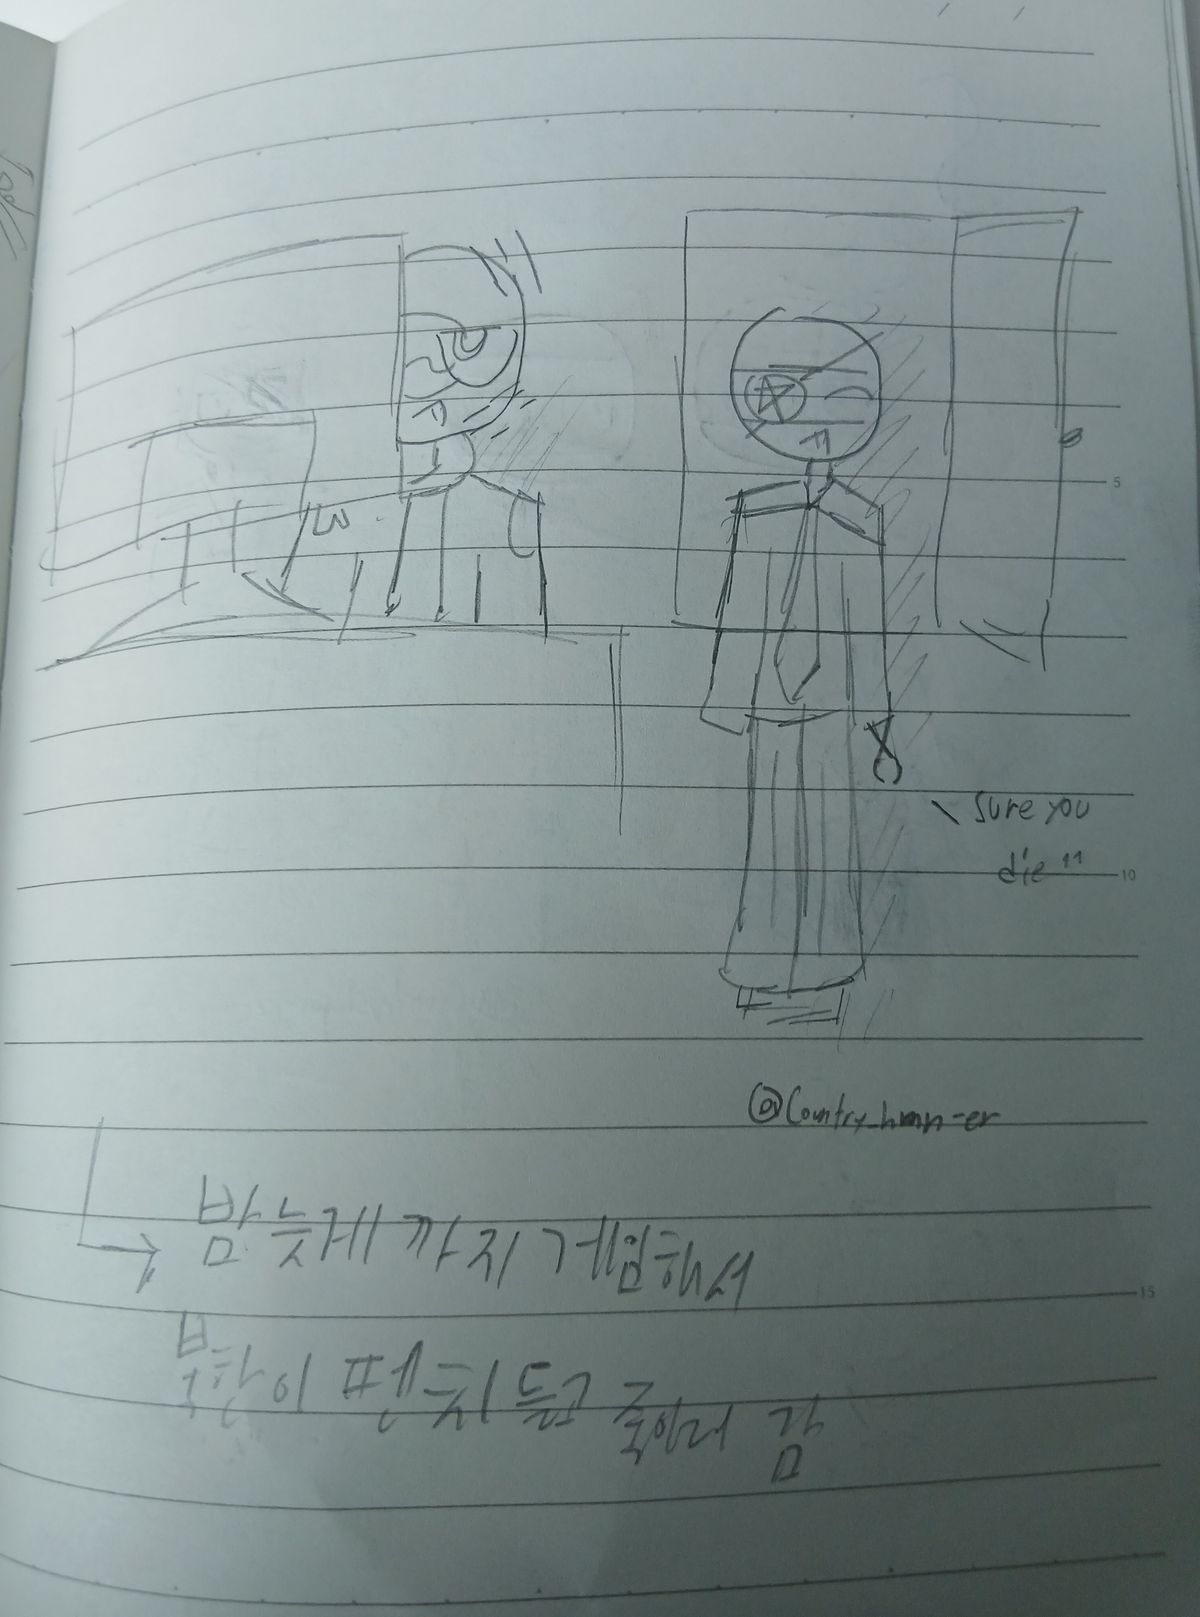 5
\ Sure you
die"
10
@Country_hmn-er
밤 늦게 까지 게임해서
15
북한이 펜치 들고 죽이러 감